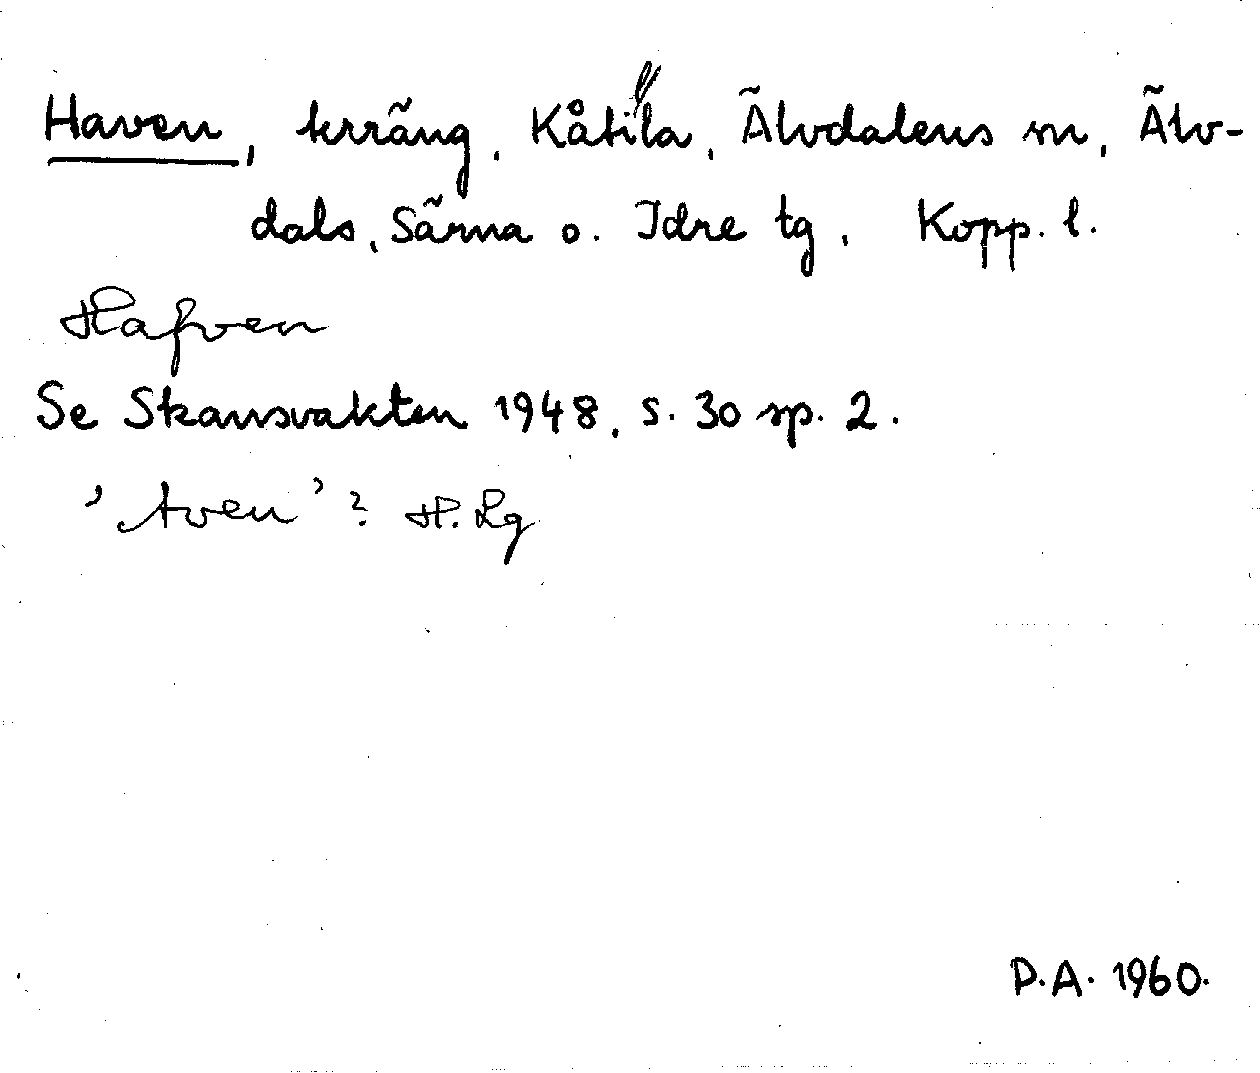 Haven, krräng, Kåtilla, Älvdalens sn, Älv-
dals, Särna o. Idre tg, Kopp. l.
Hafven
Se Skansvakten 1948, s. 30 sp. 2.
'Aven'? H. Lg
D.A. 1960.